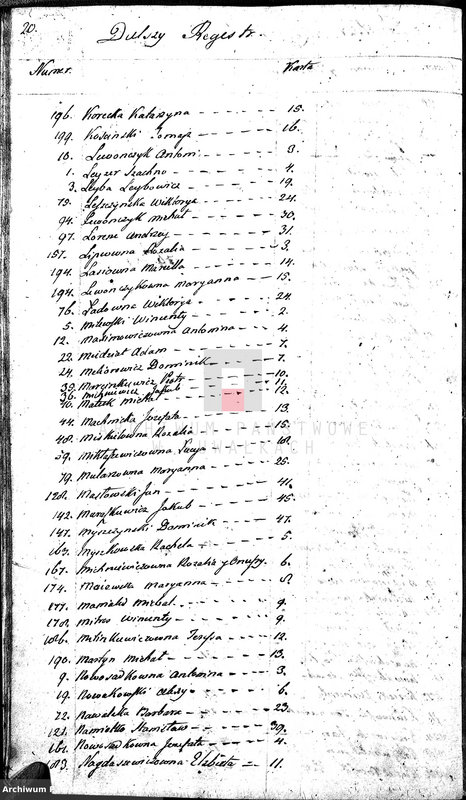 20.
Dalszy Regestr.
Numer. Karta
196. Korecka Katarzyna 15.
199. Kosciński Tomasz 16.
10. Lewonczyk Antoni 3.
1. Leyzer Szachno 4.
3. Leyba Leybowicz 19.
75. Leszczynska Wiktorya 24.
94. Lewonczyk Michał 30.
97. Lorenc Andrzey 31.
157. Lipowna Rozalia 3.
194. Lasiowna Maryella 14.
194. Lewonczykowna Maryanna 15.
76. Ladowna Wiktorya 24.
5. Milewski Wincenty 2.
12. Maximowiczowna Antonina 4.
22. Adam 7.
24. Dominik 7.
32. Marcinkiewicz Piotr 10.
36. Michniewicz Jakub 11.
40. Małek Michał 12.
44. Machnicka Jozefata 13.
48. Rozalia 15.
59. Mikłaszewiczowna Łucya 18.
79. Mularzowna Maryanna 25.
128. Masłowski Jan 41.
142. Jakub 45.
147. Myszczynski Dominik 47.
163. Myszkowska Rachela 5.
167. Michniewiczowna Rozalia y Onufry. 6.
174. Maiewska Maryanna 8.
177. Michał 9.
178. Milus Wincenty 9.
186. Milinkiewiczowna Teresa 12.
190. Martyn Michał 13.
9. Nowosadkowna Antonina 3.
19. Nowakowski 6.
72. Nawalska Barbara 23.
121. Namietko Stanisław 39.
161. Nowosadkowna Jozefata 4.
183. Elżbieta 11.
ARCHIWUM PAŃSTWOWE
W SUWAŁKACH
Archiwum